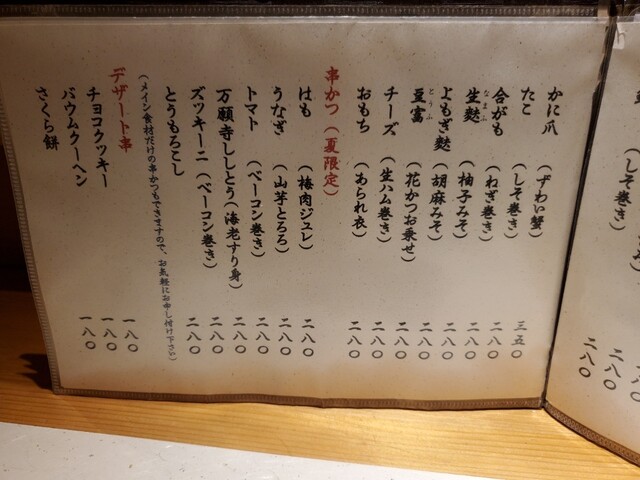 （しそ巻き）
二八〇
二八〇
かに爪 （ずわい蟹） 三五〇
たこ （しそ巻き） 二八〇
合がも （ねぎ巻き） 二八〇
なまふ
生麩 （柚子みそ） 二八〇
よもぎ麩 （胡麻みそ） 二八〇
とうふ
豆富 （花かつお乗せ） 二八〇
チーズ （生ハム巻き） 二八〇
おもち （あられ衣） 二八〇
串かつ （夏限定）
はも （梅肉ジュレ） 二八〇
うなぎ （山芋とろろ） 二八〇
トマト （ベーコン巻き） 二八〇
万願寺ししとう （海老すり身） 二八〇
ズッキーニ （ベーコン巻き） 二八〇
とうもろこし 二八〇
（メイン食材だけの串かつもできますので、お気軽にお申し付け下さい）
デザート串
チョコクッキー 一八〇
バウムクーヘン 一八〇
さくら餅 一八〇